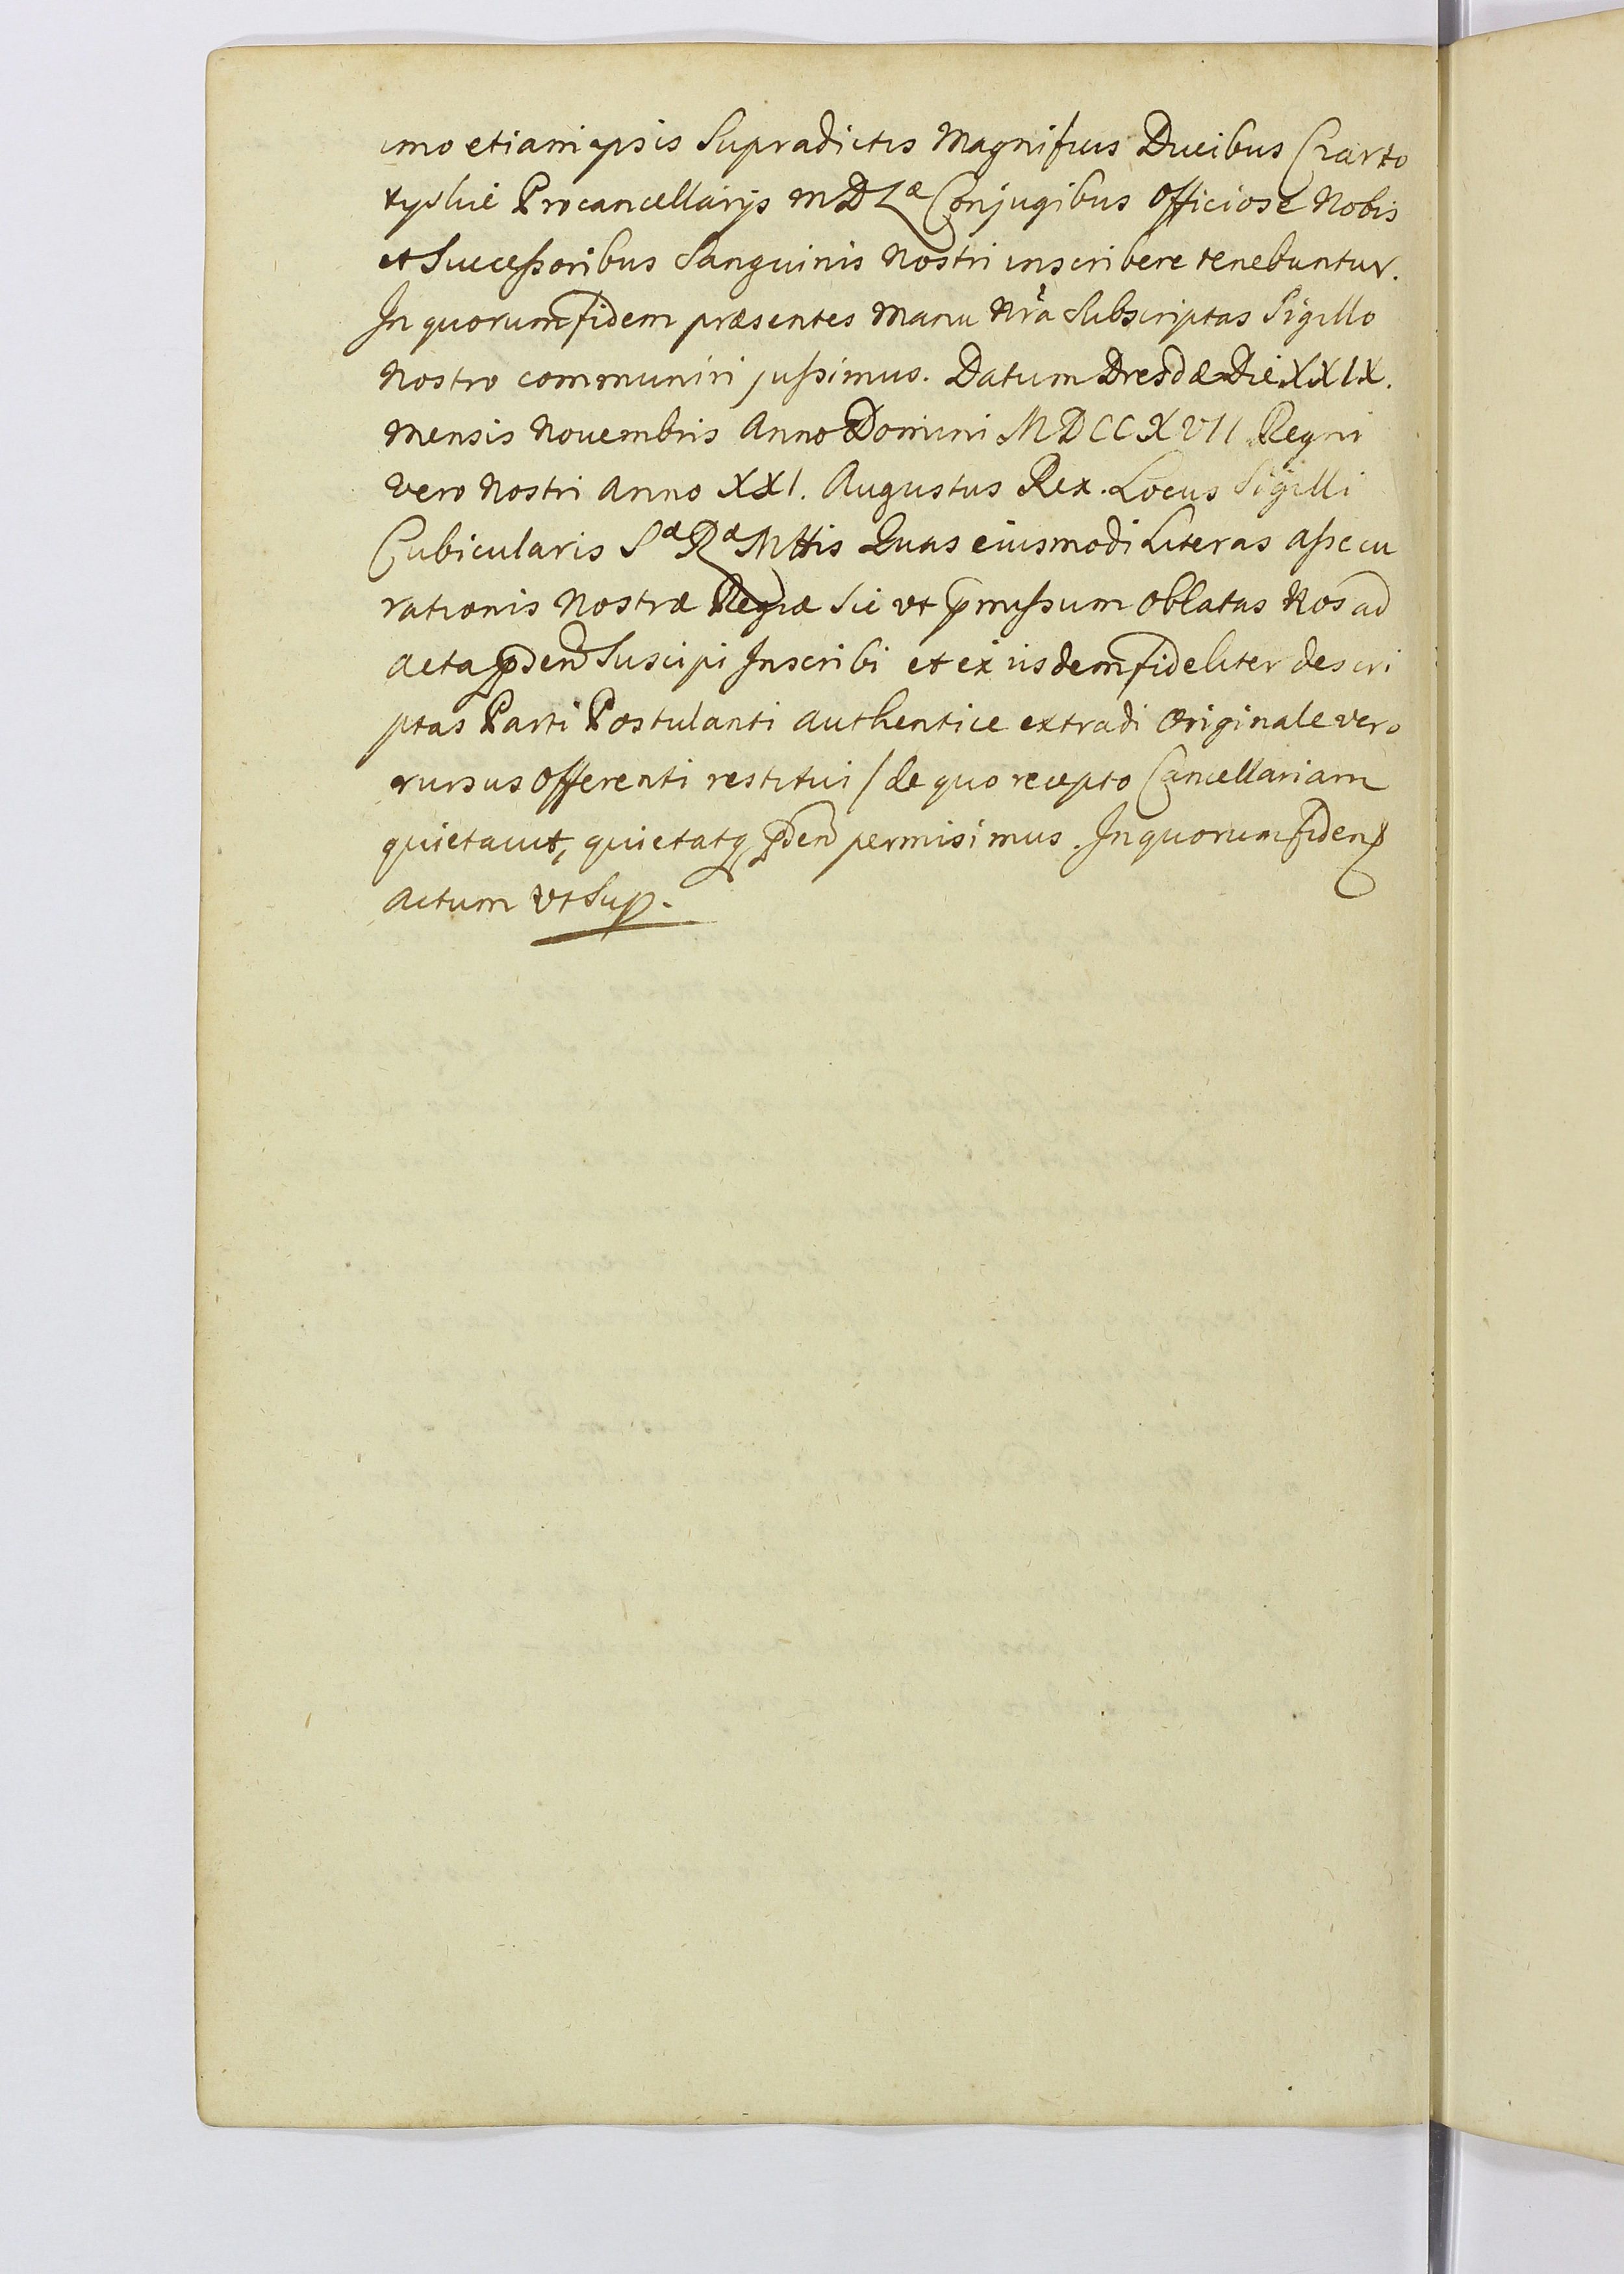 imo etiam ipsis Supradictis Magnificis Ducibus Czarto
ryskie Procancellarijs M D Læ Conjugibus Officiose Nobis
et Successoribus Sanguinis Nostri inscribere tenebuntur.
In quorum fidem præsentes Manu Nrâ Subscriptas Sigillo
Nostro communiri jussimus. Datum Dresdæ Die XXIX.
Mensis Novembris Anno Domini MDCCXVII Regni
vero Nostri Anno XXI. Augustus Rex. Locus Sigilli
Cubicularis Sæ Ræ Mttis Quas eiusmodi Literas assecu
rationis Nostræ Regiæ Sic vt pmissum Oblatas Nos ad
acta pden Suscipi Inscribi et ex iisdem fideliter descri
ptas Parti Postulanti authentice extradi Originale vero
rursus Offerenti restitui / de quo recepto Cancellariam
quietavit, quietatq pden permisimus. In quorum fidem
actum vt Sup.